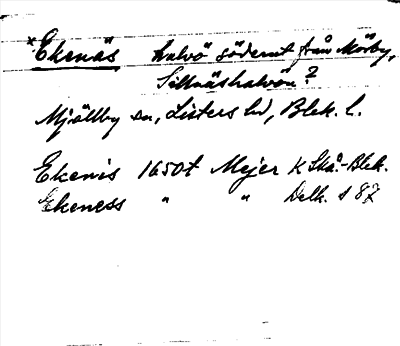 *Ekenäs halvö söderut från Mörby,
Sillnäshalvön?
Mjällby sn, Listers hd, Blek. l.
Ekenis 1650t Mejer K Skå.-Blek.
Ekeness " " Delk. s 87